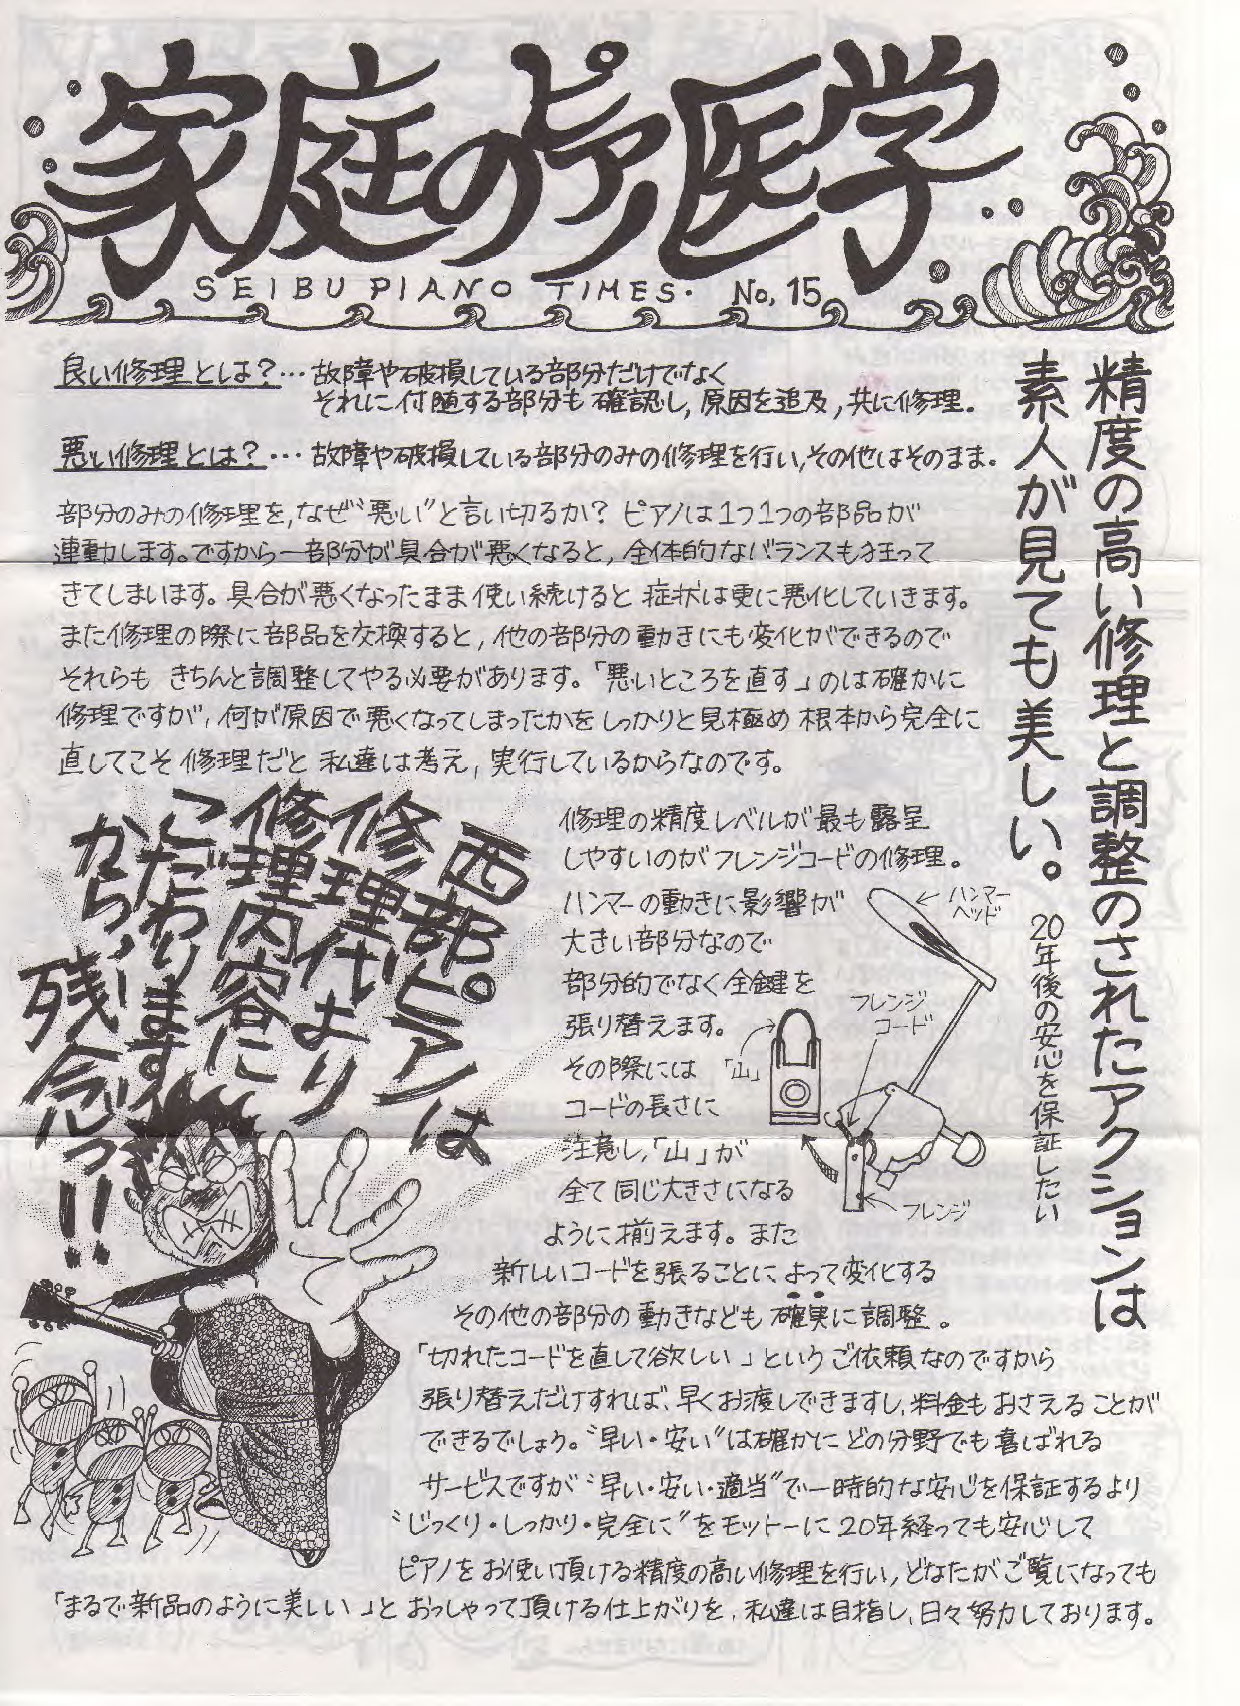 家庭のピアノ医学
SEIBU PIANO TIMES. No, 15
精度の高い修理と調整のされたアクションは
素人が見ても美しい。
20年後の安心を保証したい
良い修理とは?…故障や破損している部分だけでなく
それに付随する部分も確認し,原因を追及,共に修理.
悪い修理とは?…故障や破損している部分のみの修理を行い,その他はそのまま.
部分のみの修理を,なぜ“悪い”と言い切るか? ピアノは1つ1つの部品が
連動します。ですから一部分が具合が悪くなると,全体的なバランスも狂って
きてしまいます。具合が悪くなったまま使い続けると症状は更に悪化していきます。
また修理の際に部品を交換すると,他の部分の動きにも変化ができるので
それらもきちんと調整してやる必要があります。「悪いところを直す」のは確かに
修理ですが,何が原因で悪くなってしまったかをしっかりと見極め根本から完全に
直してこそ修理だと私達は考え,実行しているからなのです。
西部ピアノは
修理代より
修理内容に
こだわります。
から、残念っ!!
修理の精度レベルが最も露呈
しやすいのがフレンジコードの修理。
ハンマーの動きに影響が
大きい部分なので
部分的でなく全鍵を
張り替えます。
その際には
コードの長さに
注意し,「山」が
全て同じ大きさになる
ように揃えます。また
新しいコードを張ることによって変化する
その他の部分の動きなども確実に調整。
ハンマー
ヘッド
フレンジ
コード
「山」
フレンジ
「切れたコードを直して欲しい」というご依頼なのですから
張り替えだけすれば、早くお渡しできますし、料金もおさえることが
できるでしょう。“早い・安い”は確かにどの分野でも喜ばれる
サービスですが“早い・安い・適当”で一時的な安心を保証するより
“じっくり・しっかり・完全に”をモットーに20年経っても安心して
ピアノをお使い頂ける精度の高い修理を行い,どなたがご覧になっても
「まるで新品のように美しい」とおっしゃって頂ける仕上がりを、私達は目指し、日々努力しております。